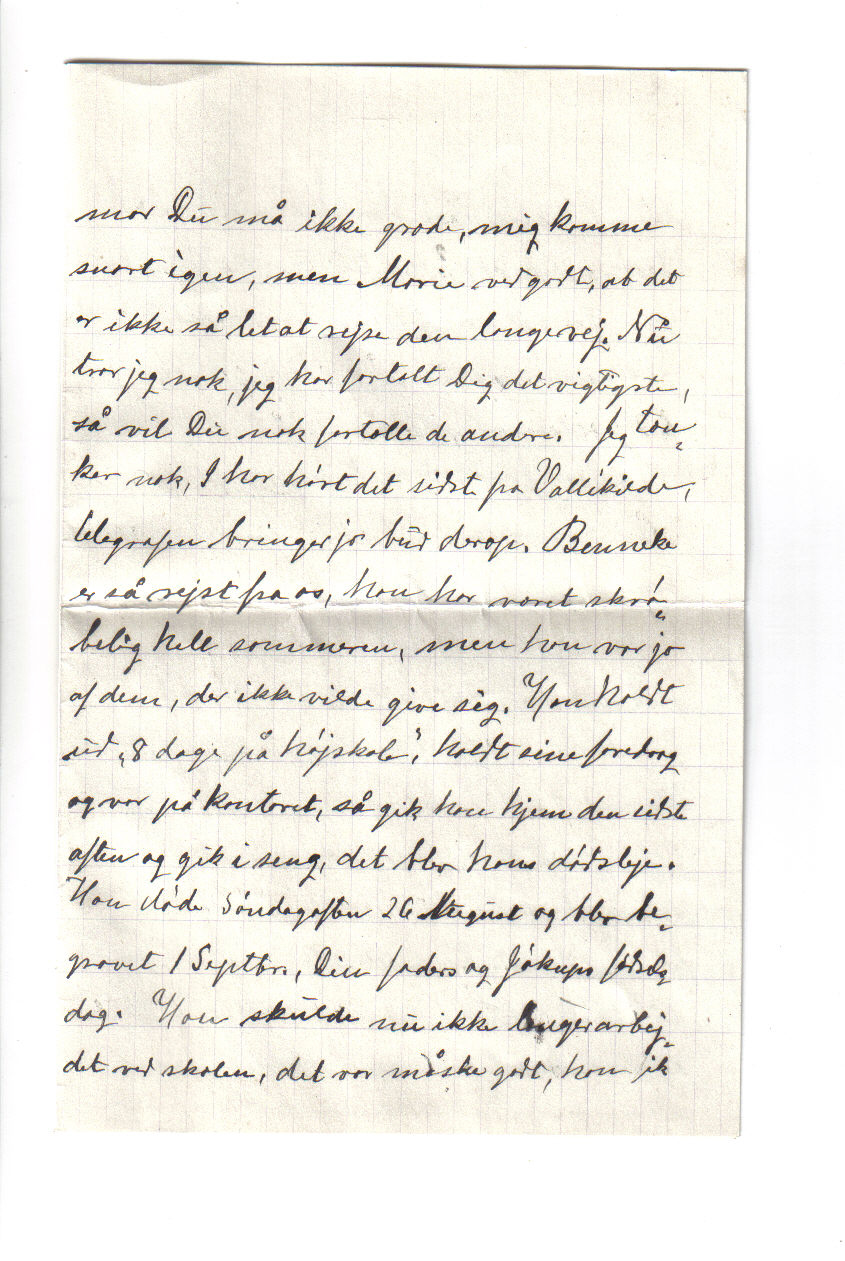 mor Du må ikke græde, mig komme
snart igen, men Marie ved godt, at det
er ikke så let at rejse den lange vej. Nu
tror jeg nok, jeg har fortalt Dig det vigtigste,
så vil Du nok fortælle de andre. Jeg tæn„
ker nok, I har hørt det sidste fra Vallekilde,
telegrafen bringer jo bud derop. Benneke
er så rejst fra os, han har været skrø„
belig hele sommeren, men han var jo
af dem, der ikke vilde give sig. Han holdt
ud „8 dage på højskole", holdt sine foredrag
og var på kontoret, så gik han hjem den sidste
aften og gik i seng, det blev hans dødsleje.
Han døde Søndagaften 26 August og blev be„
gravet 1 Septbr., Din faders og Jákups fødsels
dag. Han skulde nu ikke længer arbej„
det ved skolen, det var måske godt, han fik